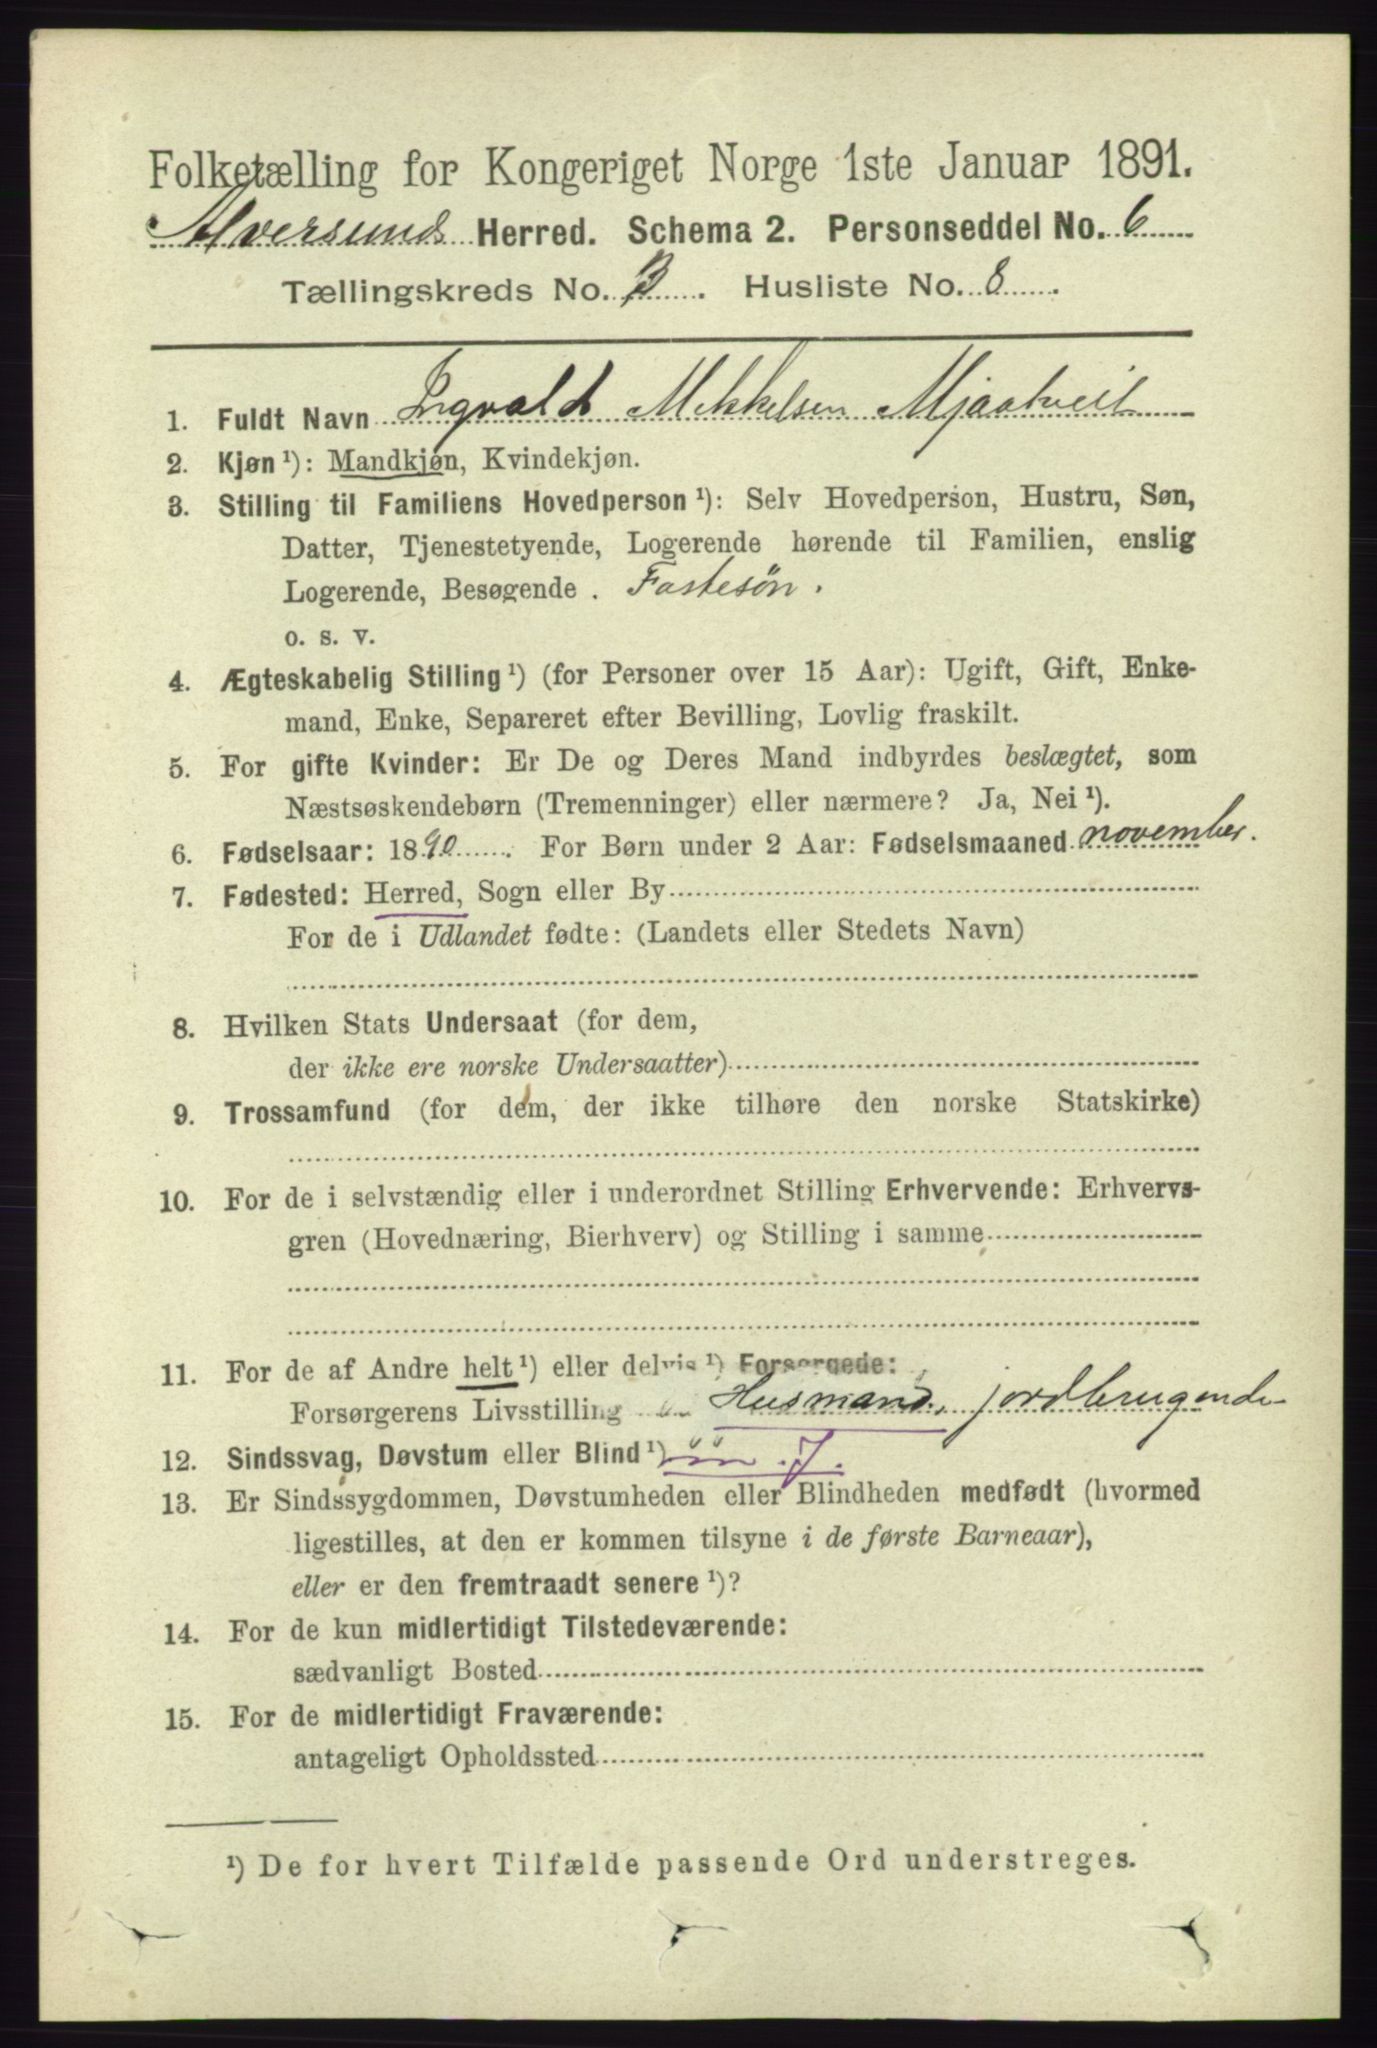 Folketælling for Kongeriget Norge 1ste Januar 1891.
Alversund Herred. Schema 2. Personseddel No. 6
Tællingskreds No. 3. Husliste No. 8.
1. Fuldt Navn Ingvald Mikkelsen Mjaatveit
2. Kjøn ¹): Mandkjøn, Kvindekjøn.
3. Stilling til Familiens Hovedperson ¹): Selv Hovedperson, Hustru, Søn,
Datter, Tjenestetyende, Logerende hørende til Familien, enslig
Logerende, Besøgende . Fostesön.
o. s. v.
4. Ægteskabelig Stilling ¹) (for Personer over 15 Aar): Ugift, Gift, Enke-
mand, Enke, Separeret efter Bevilling, Lovlig fraskilt.
5. For gifte Kvinder: Er De og Deres Mand indbyrdes beslægtet, som
Næstsøskendebørn (Tremenninger) eller nærmere? Ja, Nei ¹).
6. Fødselsaar: 1890. For Børn under 2 Aar: Fødselsmaaned november.
7. Fødested: Herred, Sogn eller By
For de i Udlandet fødte: (Landets eller Stedets Navn)
8. Hvilken Stats Undersaat (for dem,
der ikke ere norske Undersaatter)
9. Trossamfund (for dem, der ikke tilhøre den norske Statskirke)
10. For de i selvstændig eller i underordnet Stilling Erhvervende: Erhvervs-
gren (Hovednæring, Bierhverv) og Stilling i samme
11. For de af Andre helt ¹) eller delvis ¹) Forsørgede:
Forsørgerens Livsstilling Husmand, jordbrugende
12. Sindssvag, Døvstum eller Blind ¹)
13. Er Sindssygdommen, Døvstumheden eller Blindheden medfødt (hvormed
ligestilles, at den er kommen tilsyne i de første Barneaar),
eller er den fremtraadt senere ¹)?
14. For de kun midlertidigt Tilstedeværende:
sædvanligt Bosted
15. For de midlertidigt Fraværende:
antageligt Opholdssted
¹) De for hvert Tilfælde passende Ord understreges.